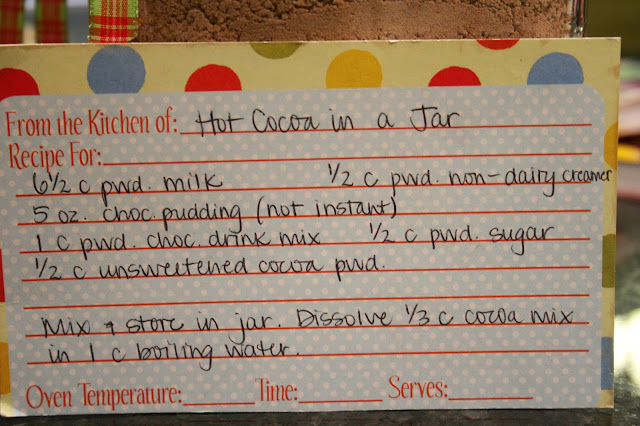 From the Kitchen of: Hot Cocoa in a Jar
Recipe For:
6 1/2 c pwd. milk 1/2 c pwd. non-dairy creamer
5 oz. choc. pudding (not instant)
1 c pwd. choc. drink mix 1/2 c pwd. sugar
1/2 c unsweetened cocoa pwd.
Mix & store in jar. Dissolve 1/3 c cocoa mix
in 1 c boiling water.
Oven Temperature: Time: Serves: